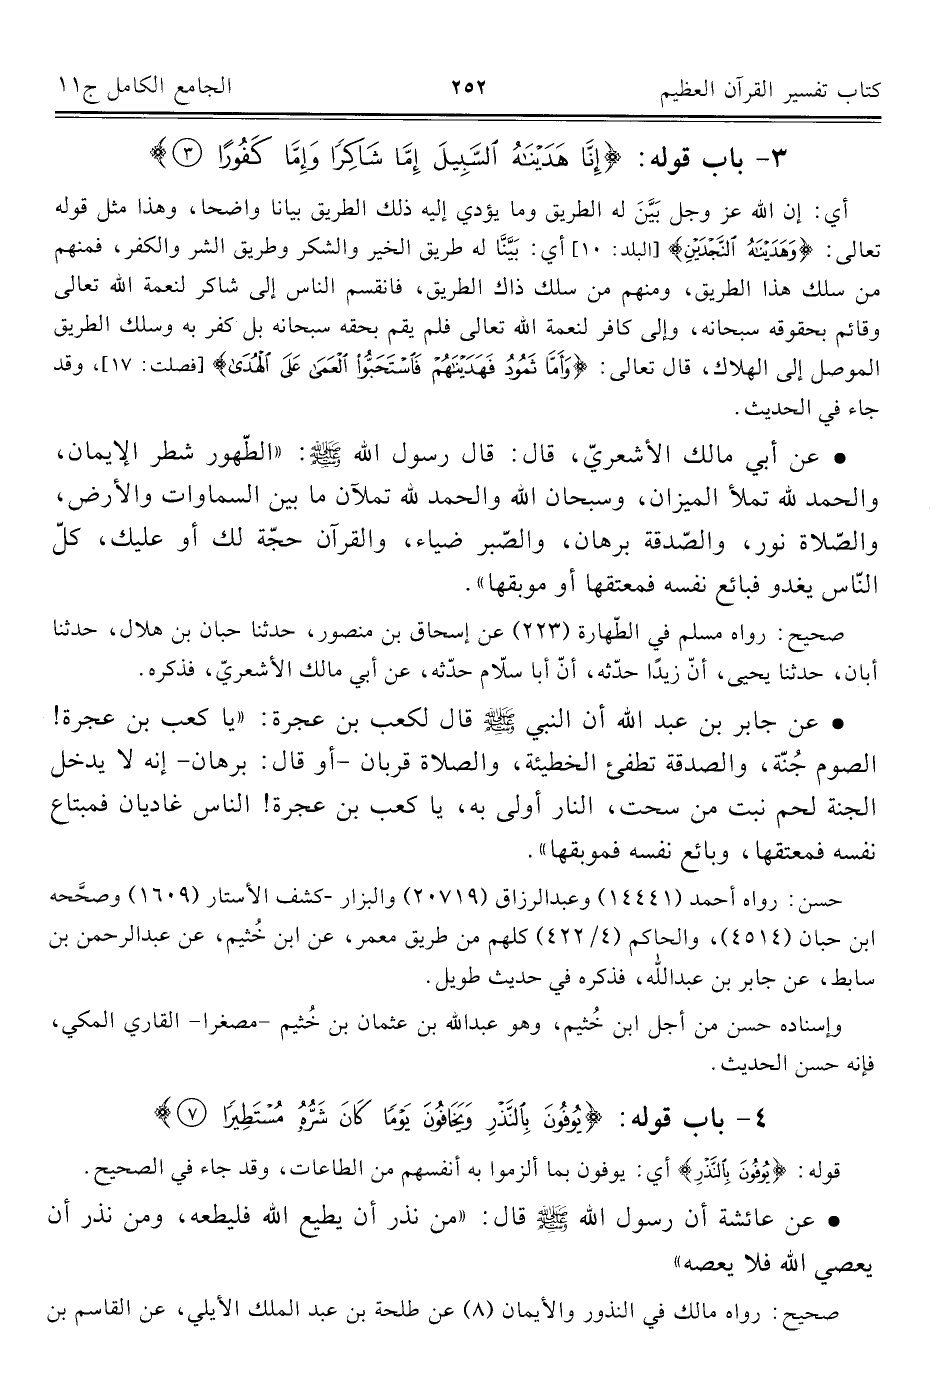 كتاب تفسير القرآن العظيم ٢٥٢ الجامع الكامل ج١١
٣- باب قوله: ﴿إِنَّا هَدَيْنَٰهُ ٱلسَّبِيلَ إِمَّا شَاكِرًا وَإِمَّا كَفُورًا ٣﴾
أي: إن الله عز وجل بَيَّنَ له الطريق وما يؤدي إليه ذلك الطريق بيانا واضحا، وهذا مثل قوله
تعالى: ﴿وَهَدَيْنَٰهُ ٱلنَّجْدَيْنِ﴾ [البلد: ١٠] أي: بَيَّنَّا له طريق الخير والشكر وطريق الشر والكفر، فمنهم
من سلك هذا الطريق، ومنهم من سلك ذاك الطريق، فانقسم الناس إلى شاكر لنعمة الله تعالى
وقائم بحقوقه سبحانه، وإلى كافر لنعمة الله تعالى فلم يقم بحقه سبحانه بل كفر به وسلك الطريق
الموصل إلى الهلاك، قال تعالى: ﴿وَأَمَّا ثَمُودُ فَهَدَيْنَٰهُمْ فَٱسْتَحَبُّوا۟ ٱلْعَمَىٰ عَلَى ٱلْهُدَىٰ﴾ [فصلت: ١٧]، وقد
جاء في الحديث.
• عن أبي مالك الأشعريّ، قال: قال رسول الله ﷺ: «الطّهور شطر الإيمان،
والحمد لله تملأ الميزان، وسبحان الله والحمد لله تملآن ما بين السماوات والأرض،
والصّلاة نور، والصّدقة برهان، والصّبر ضياء، والقرآن حجّة لك أو عليك، كلّ
النّاس يغدو فبائع نفسه فمعتقها أو موبقها».
صحيح: رواه مسلم في الطّهارة (٢٢٣) عن إسحاق بن منصور، حدثنا حبان بن هلال، حدثنا
أبان، حدثنا يحيى، أنّ زيدًا حدّثه، أنّ أبا سلّام حدّثه، عن أبي مالك الأشعريّ، فذكره.
• عن جابر بن عبد الله أن النبي ﷺ قال لكعب بن عجرة: «يا كعب بن عجرة!
الصوم جُنّة، والصدقة تطفئ الخطيئة، والصلاة قربان -أو قال: برهان- إنه لا يدخل
الجنة لحم نبت من سحت، النار أولى به، يا كعب بن عجرة! الناس غاديان فمبتاع
نفسه فمعتقها، وبائع نفسه فموبقها».
حسن: رواه أحمد (١٤٤٤١) وعبدالرزاق (٢٠٧١٩) والبزار -كشف الأستار (١٦٠٩) وصحَّحه
ابن حبان (٤٥١٤)، والحاكم (٤/ ٤٢٢) كلهم من طريق معمر، عن ابن خُثيم، عن عبدالرحمن بن
سابط، عن جابر بن عبدالله، فذكره في حديث طويل.
وإسناده حسن من أجل ابن خُثيم، وهو عبدالله بن عثمان بن خُثيم -مصغرا- القاري المكي،
فإنه حسن الحديث.
٤- باب قوله: ﴿يُوفُونَ بِٱلنَّذْرِ وَيَخَافُونَ يَوْمًا كَانَ شَرُّهُۥ مُسْتَطِيرًا ٧﴾
قوله: ﴿يُوفُونَ بِٱلنَّذْرِ﴾ أي: يوفون بما ألزموا به أنفسهم من الطاعات، وقد جاء في الصحيح.
• عن عائشة أن رسول الله ﷺ قال: «من نذر أن يطيع الله فليطعه، ومن نذر أن
يعصي الله فلا يعصه»
صحيح: رواه مالك في النذور والأيمان (٨) عن طلحة بن عبد الملك الأيلي، عن القاسم بن